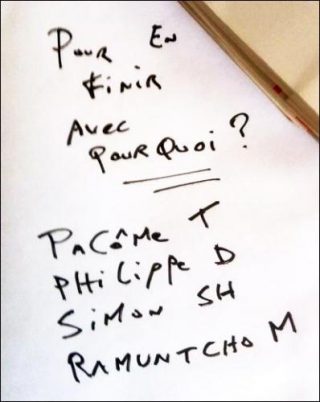 POUR EN
FINIR
AVEC
POURQUOI ?
PACÔME T
PHILIPPE D
SIMON SH
RAMUNTCHO M